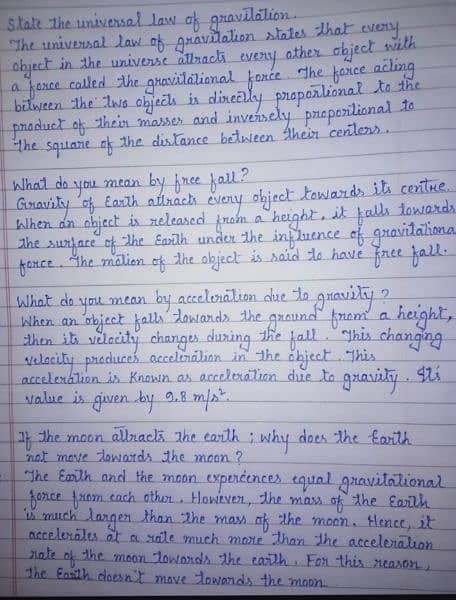 State the universal law of gravitation.
The universal law of gravitation states that every
object in the universe attracts every other object with
a force called the gravitational force. The force acling
between the two objects is direclly proportional to the
product of their masses and inversely proportional to
the square of the distance between their centers.
What do you mean by free fall?
Gravity of Earth attracts every object towards its centre.
When an object is released from a height, it falls towards
the surface of the Earth under the influence of gravitationa
force. The motion of the object is said to have free fall.
What do you mean by acceleration due to gravity?
When an object falls towards the ground from a height,
then its velocity changes during the fall. This changing
velocity produces acceleration in the object. This
acceleration is Known as acceleration due to gravity. Its
value is given by 9.8 m/s².
If the moon attracts the earth; why does the Earth
not move towards the moon?
The Earth and the moon experiences equal gravitational
force from each other. However, the mass of the Earth
is much larger than the mass of the moon. Hence, it
accelerates at a rate much more than the acceleration
rate of the moon towards the earth. For this reason,
the Earth doesn't move towards the moon